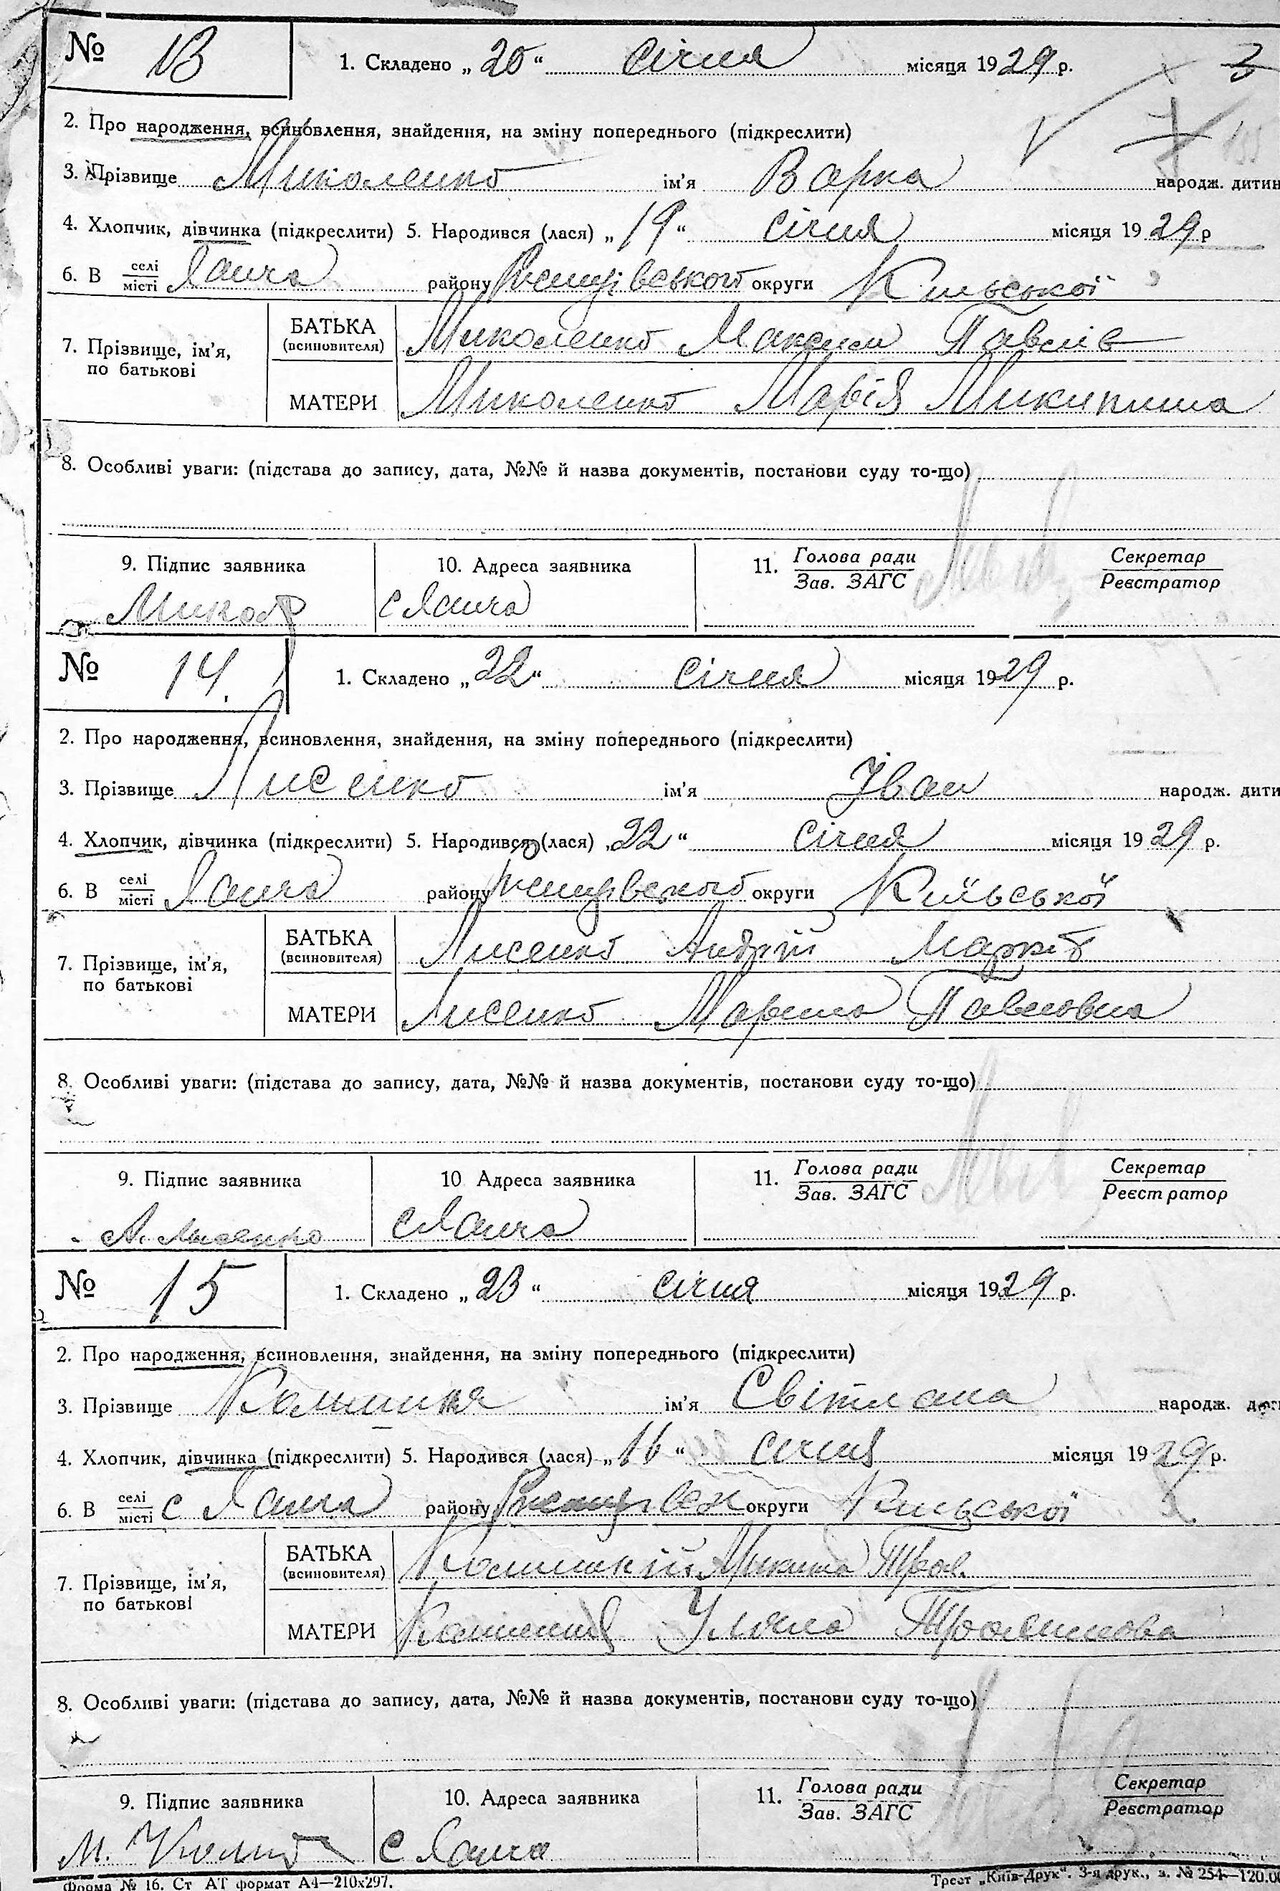 № 13 1. Складено „20“ січня місяця 1929 р. 3
2. Про народження, всиновлення, знайдення, на зміну попереднього (підкреслити)
3. Прізвище Миколенко ім'я Варка народж. дитин
4. Хлопчик, дівчинка (підкреслити) 5. Народився (лася) „19“ січня місяця 1929 р
6. В селі/місті Яанча району округи Київської
7. Прізвище, ім'я, по батькові
БАТЬКА (всиновителя) Миколенко Максим Павлів
МАТЕРИ Миколенко Марія Микитина
8. Особливі уваги: (підстава до запису, дата, №№ й назва документів, постанови суду то-що)
9. Підпис заявника 10. Адреса заявника 11. Голова ради / Зав. ЗАГС Секретар / Реєстратор
Микол с Яанча
№ 14. 1. Складено „22“ січня місяця 1929 р.
2. Про народження, всиновлення, знайдення, на зміну попереднього (підкреслити)
3. Прізвище Лисенко ім'я Іван народж. дити
4. Хлопчик, дівчинка (підкреслити) 5. Народився (лася) „22“ січня місяця 1929 р.
6. В селі/місті Яанча району округи Київської
7. Прізвище, ім'я, по батькові
БАТЬКА (всиновителя) Лисенко Андрій Марків
МАТЕРИ Лисенко Марина Павловна
8. Особливі уваги: (підстава до запису, дата, №№ й назва документів, постанови суду то-що)
9. Підпис заявника 10 Адреса заявника 11. Голова ради / Зав. ЗАГС Секретар / Реєстратор
А. Лисенко с Яанча
№ 15 1. Складено „23“ січня місяця 1929 р.
2. Про народження, всиновлення, знайдення, на зміну попереднього (підкреслити)
3. Прізвище ім'я Світлана народж.
4. Хлопчик, дівчинка (підкреслити) 5. Народився (лася) „16“ січня місяця 1929 р.
6. В селі/місті с Яанча району округи Київської
7. Прізвище, ім'я, по батькові
БАТЬКА (всиновителя) Микита Троя.
МАТЕРИ Уляна Троянова
8. Особливі уваги: (підстава до запису, дата, №№ й назва документів, постанови суду то-що)
9. Підпис заявника 10. Адреса заявника 11. Голова ради / Зав. ЗАГС Секретар / Реєстратор
М. с Яанча
Форма № 16. Ст АТ формат А4—210х297. Трест „Київ-Друк“. 3-я друк., з. № 254—120.00